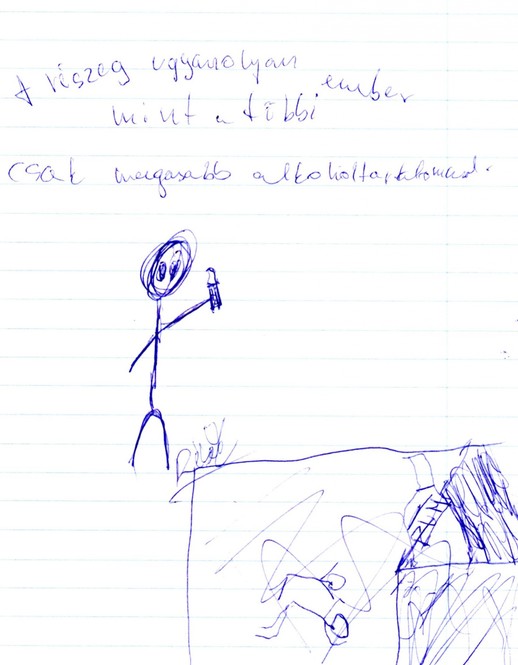 A részeg ugyanolyan ember
mint a többi
csak magasabb alkoholtartalommal.